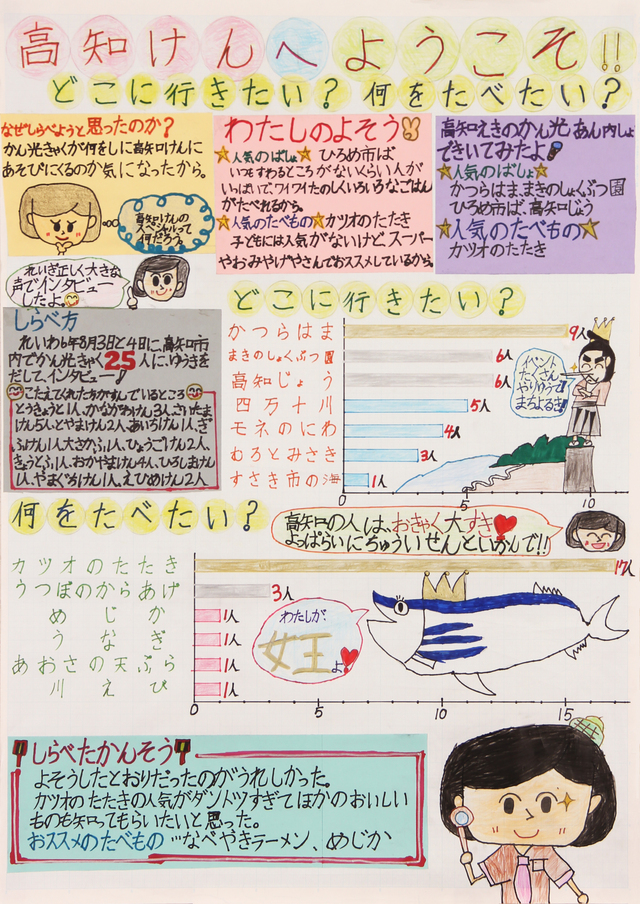 高知けんへようこそ!!
どこに行きたい？ 何をたべたい？
なぜしらべようと思ったのか？
かん光きゃくが何をしに高知けんに
あそびにくるのか気になったから。
高知けんの
スペシャルって
何だろう。
わたしのよそう
人気のばしょ ひろめ市ば
いつもすわるところがないくらい人が
いっぱいで、ワイワイたのしくいろいろなごはん
がたべれるから。
人気のたべもの カツオのたたき
子どもには人気がないけど、スーパー
やおみやげやさんでおススメしているから。
高知えきのかん光あん内じょ
できいてみたよ
人気のばしょ
かつらはま、まきのしょくぶつ園
ひろめ市ば、高知じょう
人気のたべもの
カツオのたたき
れいぎ正しく大きな
声でインタビュー
したよ。
しらべ方
れいわ6年8月3日と4日に、高知市
内でかん光きゃく25人に、ゆうきを
だして、インタビュー!
こたえてくれた方がすんでいるところ
とうきょう1人、かながわけん3人、さいたま
けん5人、とやまけん2人、あいちけん1人、ぎ
ふけん1人、大さかふ1人、ひょうごけん2人、
きょうとふ1人、おかやまけん4人、ひろしまけん
1人、やまぐちけん1人、えひめけん2人
どこに行きたい？
かつらはま 9人
まきのしょくぶつ園 6人
高知じょう 6人
四万十川 5人
モネのにわ 4人
むろとみさき 3人
すさき市の海 1人
0 5 10
イベント
たくさん
やりゆう!
まちよるき!
何をたべたい？
高知の人は、おきゃく大すき
よっぱらいにちゅういせんといかんで!!
カツオのたたき 17人
うつぼのからあげ 3人
めじか 1人
うなぎ 1人
あおさの天ぷら 1人
川えび 1人
0 5 10 15
わたしが、
女王
よ
しらべたかんそう
よそうしたとおりだったのがうれしかった。
カツオのたたきの人気がダントツすぎてほかのおいしい
ものも知ってもらいたいと思った。
おススメのたべもの …なべやきラーメン、めじか